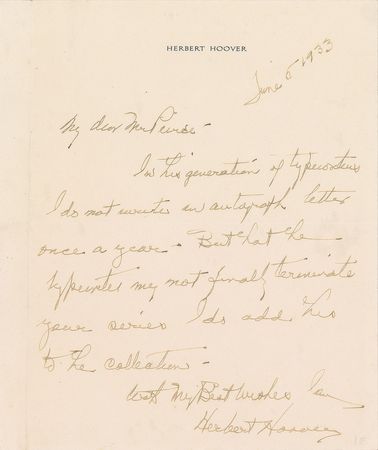 HERBERT HOOVER
June 5 1933
My dear Mr Peirce -
In this generation of typewriters
I do not write an autograph letter
once a year - But that the
typewriter may not finally terminate
your series I do add this
to the collection -
With My Best Wishes I am
Herbert Hoover